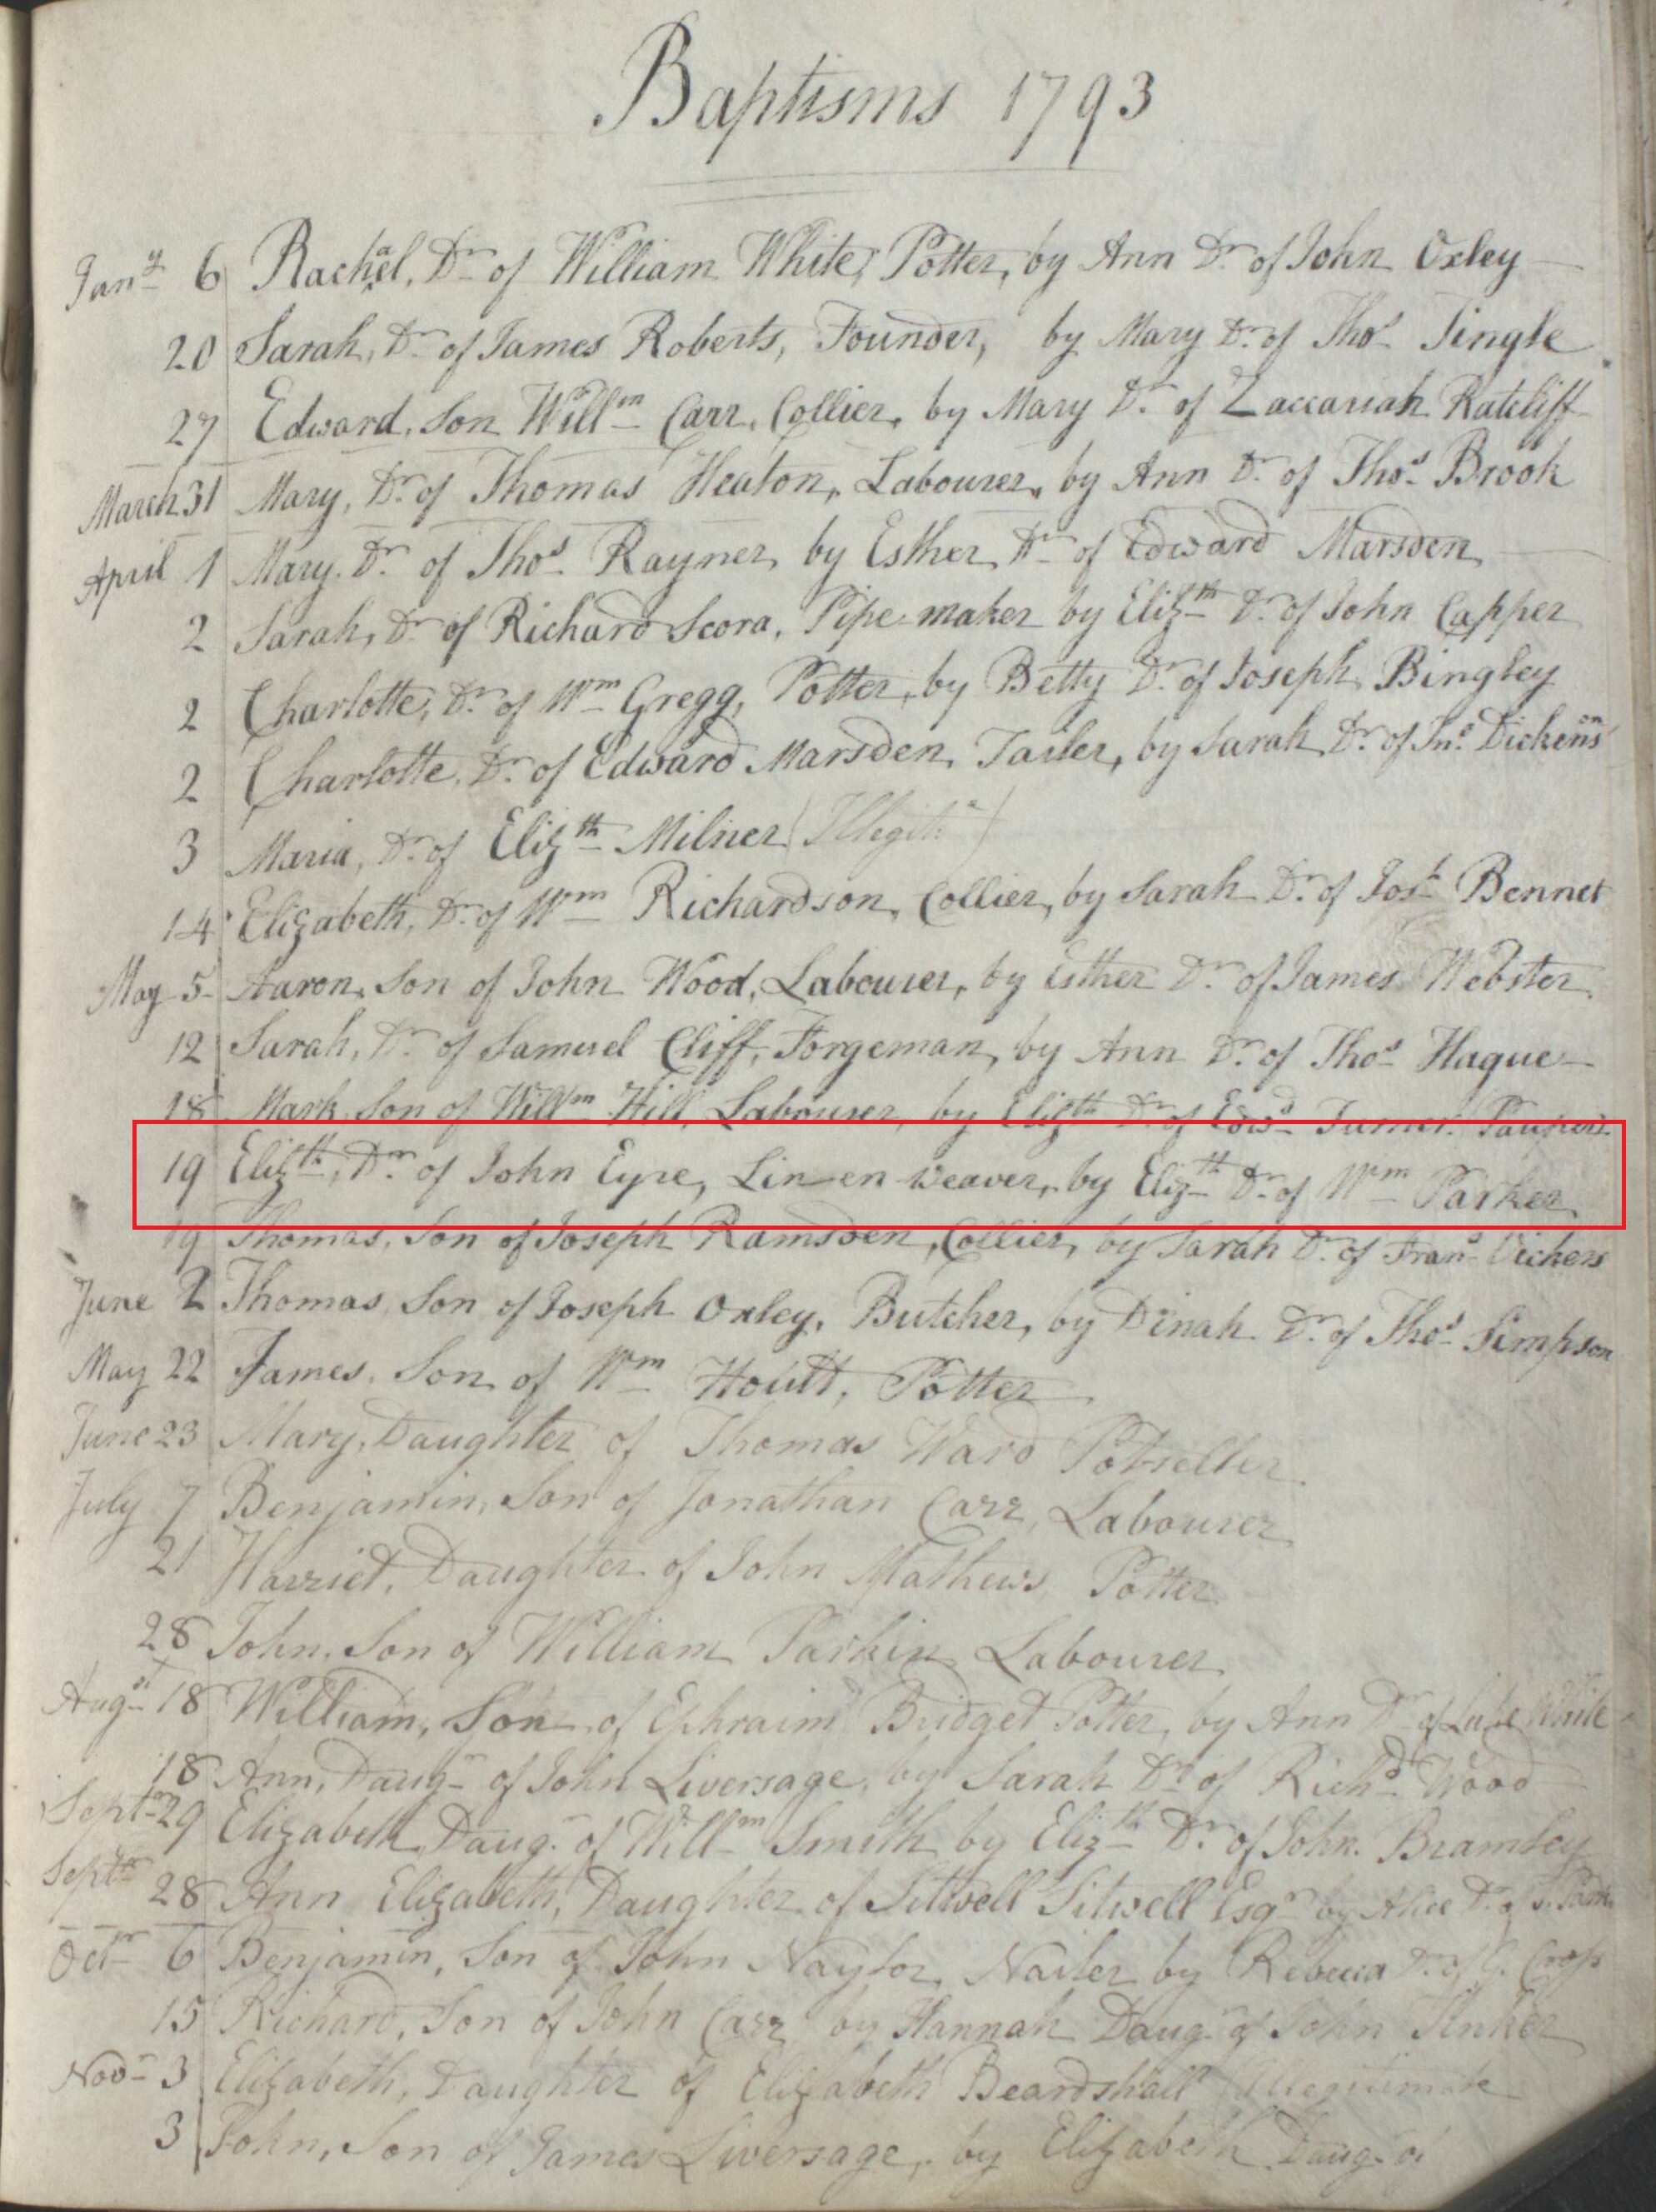 Baptisms 1793
Jany 6 Rachael, Dr of William White, Potter, by Ann Dr of John Oxley
20 Sarah, Dr of James Roberts, Founder, by Mary Dr of Thos Tingle
27 Edward, Son Willm Carr, Collier, by Mary Dr of Zaccariah Ratcliff
March 31 Mary, Dr of Thomas Heaton, Labourer, by Ann Dr of Thos Brook
April 1 Mary, Dr of Thos Rayner, by Esther, Dr of Edward Marsden
2 Sarah, Dr of Richard Scora, Pipe maker by Elizth Dr of John Capper
2 Charlotte, Dr of Wm Gregg, Potter, by Betty Dr of Joseph Bingley
2 Charlotte, Dr of Edward Marsden, Tailer, by Sarah Dr of Jns Dickenson
3 Maria, Dr of Elizth Milner (Illegite)
14 Elizabeth, Dr of Wm Richardson, Collier, by Sarah Dr of Josh Bennet
May 5 Aaron, Son of John Wood, Labourer, by Esther Dr of James Webster
12 Sarah, Dr of Samuel Cliff, Forgeman, by Ann Dr of Thos Hague
18 Mark, Son of Willm Hill, Labourer, by Elizth Dr of Edwd Turner
19 Elizth, Dr of John Eyre, Linen weaver, by Elizth Dr of Wm Parker
19 Thomas, Son of Joseph Ramsden, Collier, by Sarah Dr of Frans Vickers
June 2 Thomas, Son of Joseph Oxley, Butcher, by Dinah Dr of Thos Simpson
May 22 James, Son of Wm Hoult, Potter
June 23 Mary, Daughter of Thomas Ward Potseller
July 7 Benjamin, Son of Jonathan Carr, Labourer
21 Harriet, Daughter of John Mathews Potter
28 John, Son of William Parkin Labourer
Augst 18 William, Son of Ephraim Bridget Potter, by Ann Dr of Luke White
18 Ann, Daugr of John Liversage, by Sarah Dr of Richd Wood
Septm 29 Elizabeth Daugr of Willm Smith by Elizth Dr of John Bramley
Septm 28 Ann Elizabeth, Daughter of Sittwell Sitwell Esqr by Alice Dr of
Octr 6 Benjamin, Son of John Naylor, Nailer by Rebecca Dr of G. Cross
15 Richard, Son of John Carr by Hannah Daugr of John Tinker
Novr 3 Elizabeth, Daughter of Elizabeth Beardshall Illegitimate
3 John, Son of James Liversage, by Elizabeth Daugr of